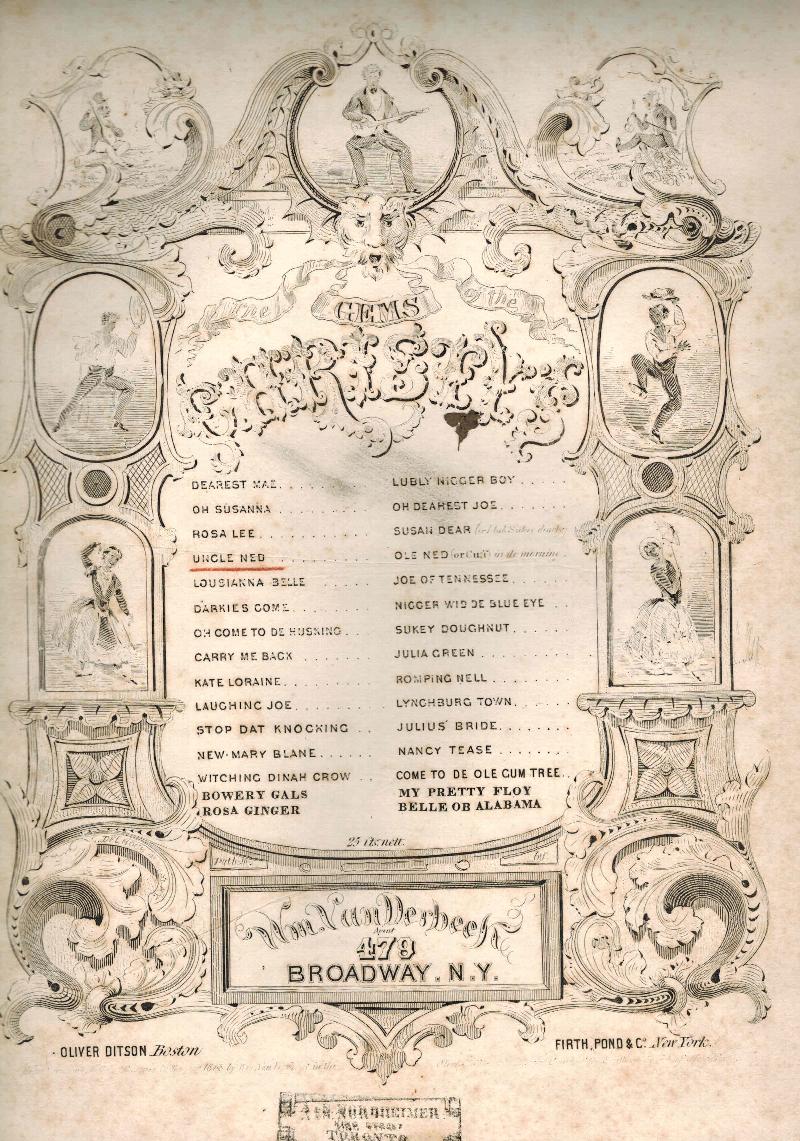 The GEMS of the
CHRISTY'S
DEAREST MAE.
OH SUSANNA
ROSA LEE
UNCLE NED
LOUSIANNA BELLE
DARKIES COME
OH COME TO DE HUSKING
CARRY ME BACK
KATE LORAINE
LAUGHING JOE
STOP DAT KNOCKING
NEW-MARY BLANE
WITCHING DINAH CROW
BOWERY GALS
ROSA GINGER
LUBLY NIGGER BOY
OH DEAREST JOE
SUSAN DEAR
OLE NED in de morning
JOE OF TENNESSEE
NIGGER WID DE BLUE EYE
SUKEY DOUGHNUT
JULIA GREEN
ROMPING NELL
LYNCHBURG TOWN
JULIUS' BRIDE
NANCY TEASE
COME TO DE OLE GUM TREE
MY PRETTY FLOY
BELLE OB ALABAMA
25 cts. nett.
by
Wm. VanDerbeek
Agent
479
BROADWAY. N.Y.
OLIVER DITSON Boston
FIRTH, POND & Co. New York.
A & S. NORDHEIMER
King Street
TORONTO